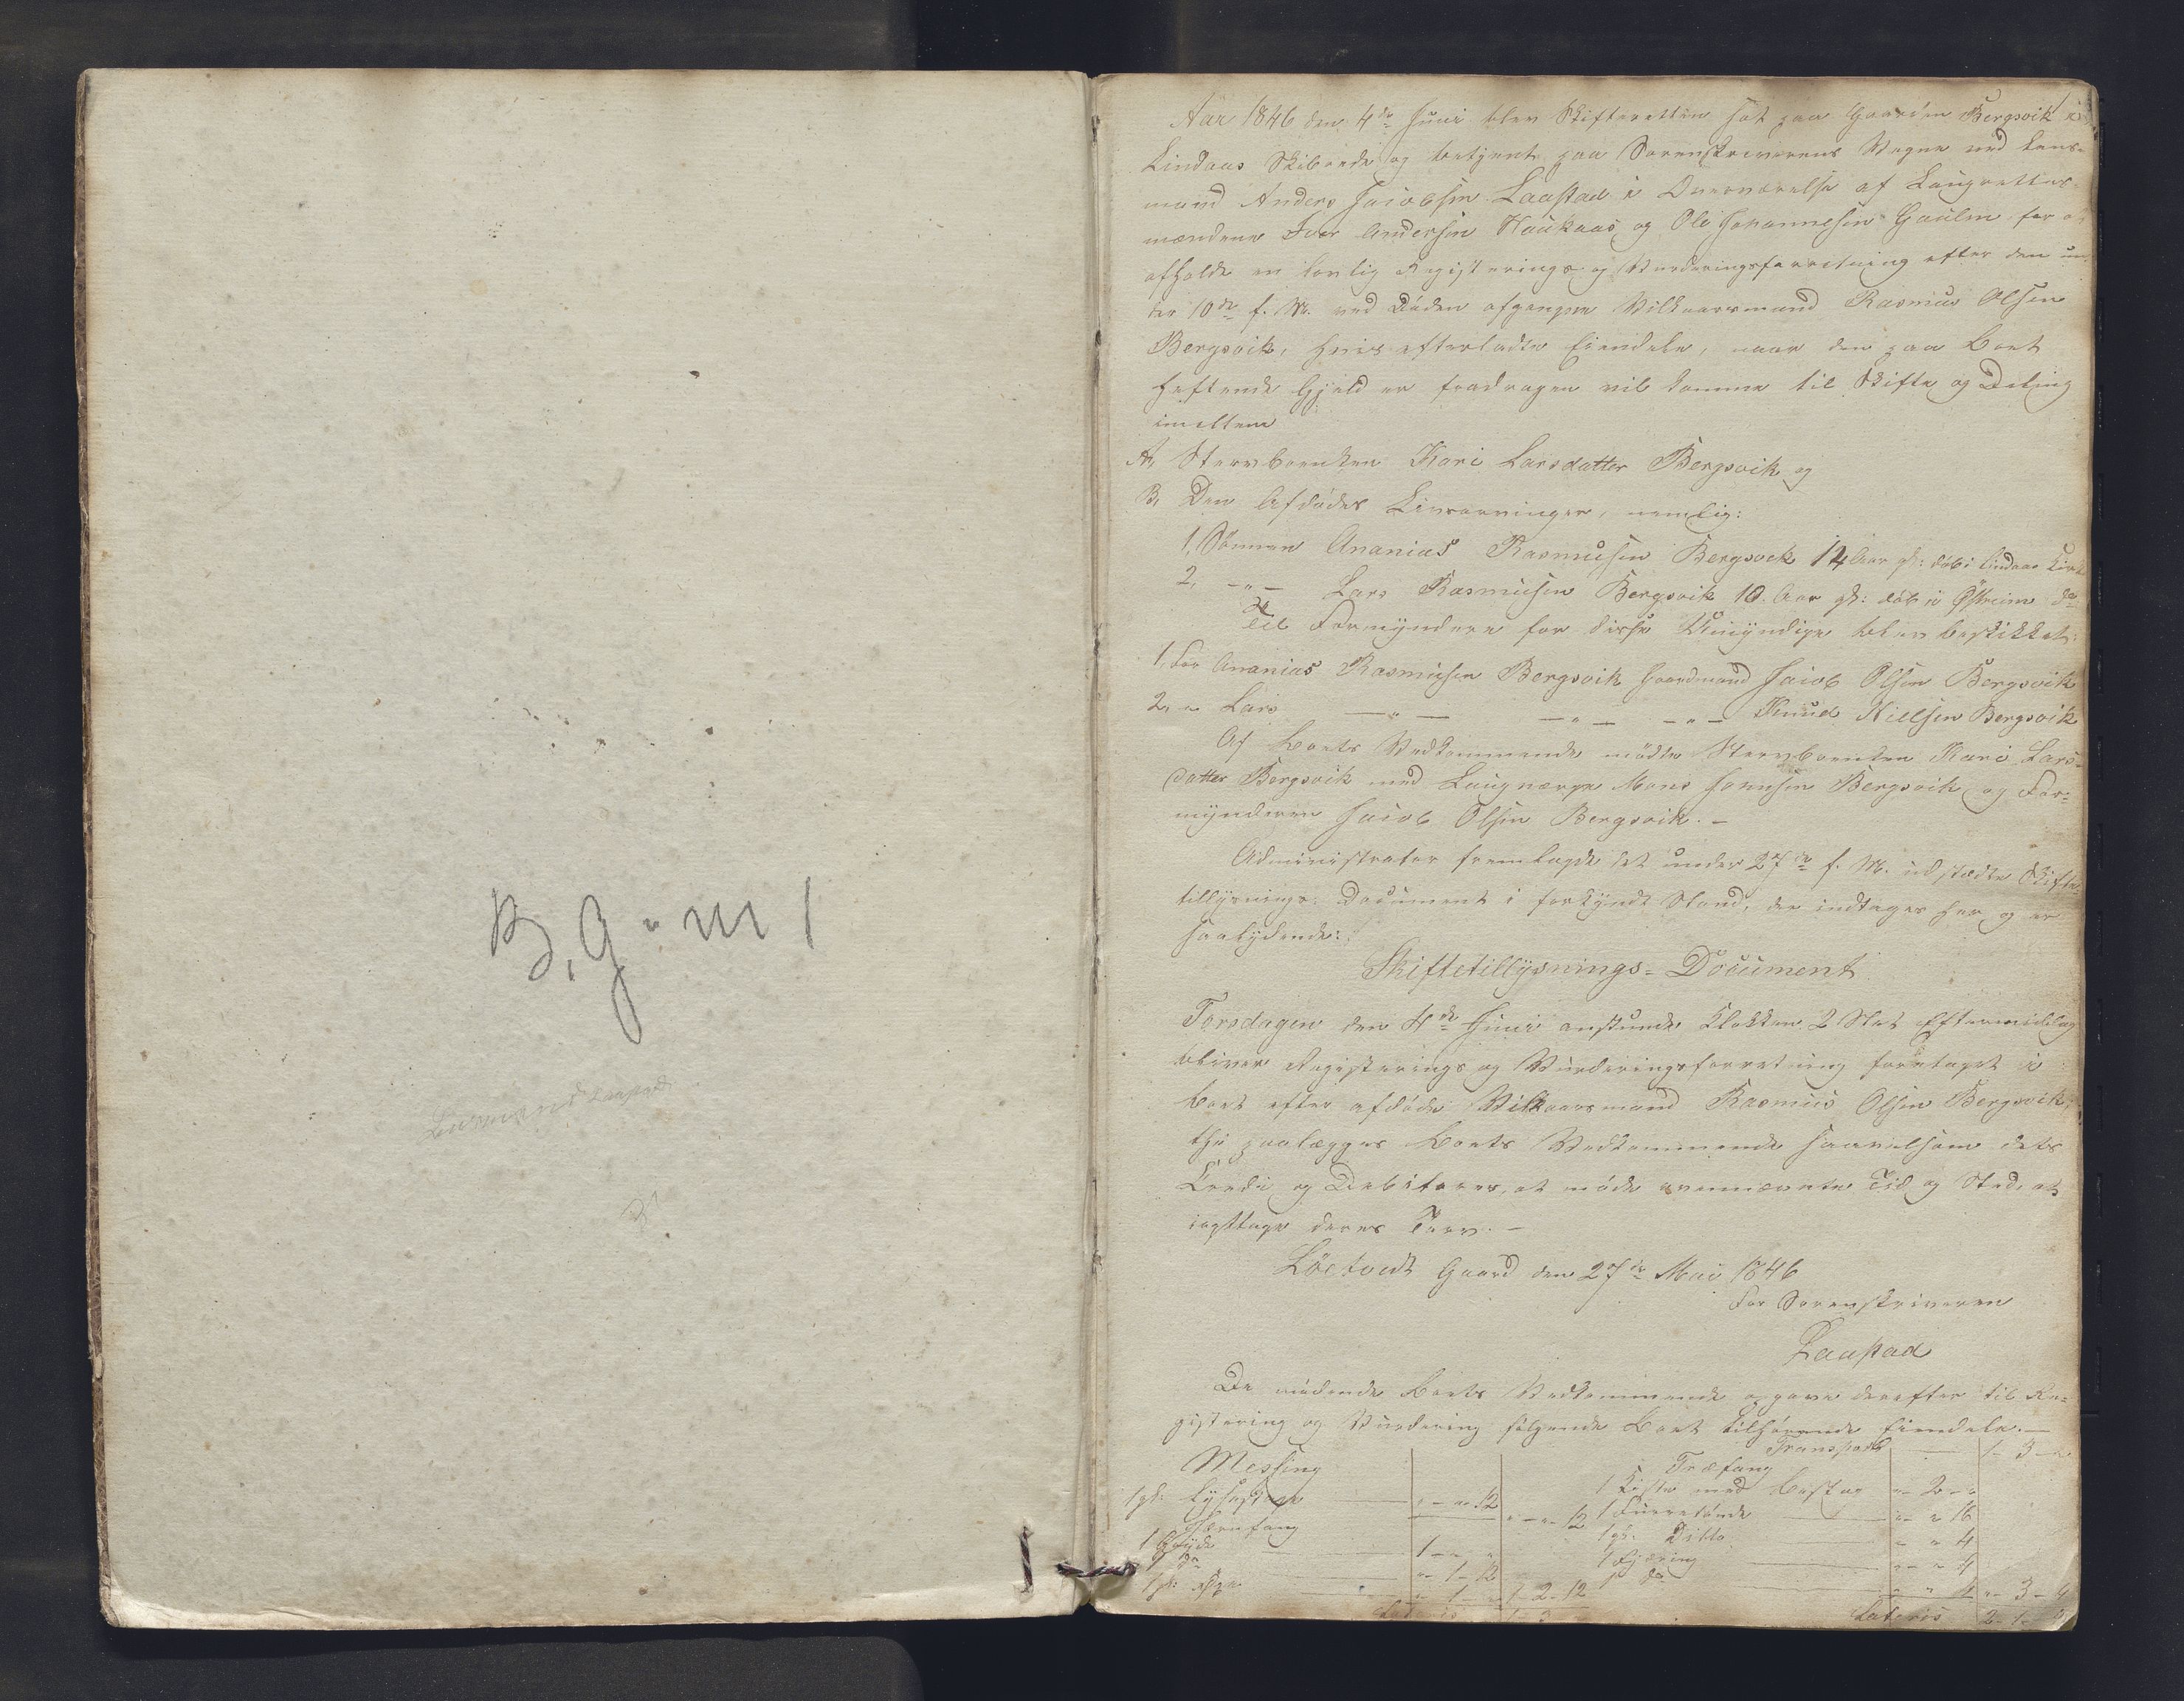 B, G " m 1
Lensmand Laastad
1
Aar 1846 den 4de Juni blev Skifteretten sat paa Gaarden Bergsvik i
Lindaas Skibrede og betjent paa Sorenskriverens Vegne ved Lens-
mand Anders Jacobsen Laastad i Overværelse af Laugrettes-
mændene Iver Andersen Haukaas og Ole Johannesen Gaulen for at
afholde en lovlig Registerings og Vurderingsforretning efter den un-
der 10de f. M. ved Døden afgangne Vilkaarsmand Rasmus Olsen
Bergsvik, hvis efterladte Eiendele, naar den paa Boet
heftende Gjeld er fradragen vil komme til Skifte og Deling
imellem
A, Stervboenken Kari Larsdatter Bergsvik og
B, Den Afdødes Livsarvinger, nemlig:
1, Sønnen Ananias Rasmusen Bergsvik 14 Aar gl: døbt i Lindaas Kirke
2, -"- Lars Rasmusen Bergsvik 10 Aar gl: døbt i Østreim do
Til Formyndere for disse Umyndige blev beskikket:
1, For Ananias Rasmusen Bergsvik Gaardmand Jacob Olsen Bergsvik
2, " Lars -"- -"- -"- Knud Nillsen Bergsvik
Af Boets Vedkommende mødte Stervboenken Kari Lars-
datter Bergsvik med Laugværge Mons Johnsen Bergsvik og For-
mynderen Jacob Olsen Bergsvik. -
Administrator fremlagde det under 27de f. M. udstædte Skifte-
tillysnings-Document i forkyndt Stand, der indtages her og er
saalydende:
Skiftetillysnings-Document
Torsdagen den 4de Juni anstundende Klokken 2 Slet Eftermiddag
bliver Registerings og Vurderingsforretning foretaget i
Boet efter afdøde Vilkaarsmand Rasmus Olsen Bergsvik,
thi paalægges Boets Vedkommende saavelsom dets
Credi og Debitorer, at møde ovennævnte Tid og Sted, at
iagttage deres Tarv. -
Løetvedt Gaard den 27de Mai 1846
For Sorenskriveren
Laastad
De mødende Boets Vedkommende opgave derefter til Re-
gistering og Vurdering følgende Boet tilhørende Eiendele. -
Messing
1 gl: Lysestage " - " 12 " - " 12
Jernfang
1 Gryde 1 - " "
1 do " - 1 - 12
1 gl: Øxe " 1 - " 1 - 2 - 12
Lateris 1 - 3 - "
Transport 1 - 3 - "
Træfang
1 Kiste med Beslag " - 2 - "
1 Furretønde " - " 16
1 gl. Ditto " - " 4
1 Fjæring " - " 4
1 do " - " 4 " - 3 - 4
Lateris 2 - 1 - 4